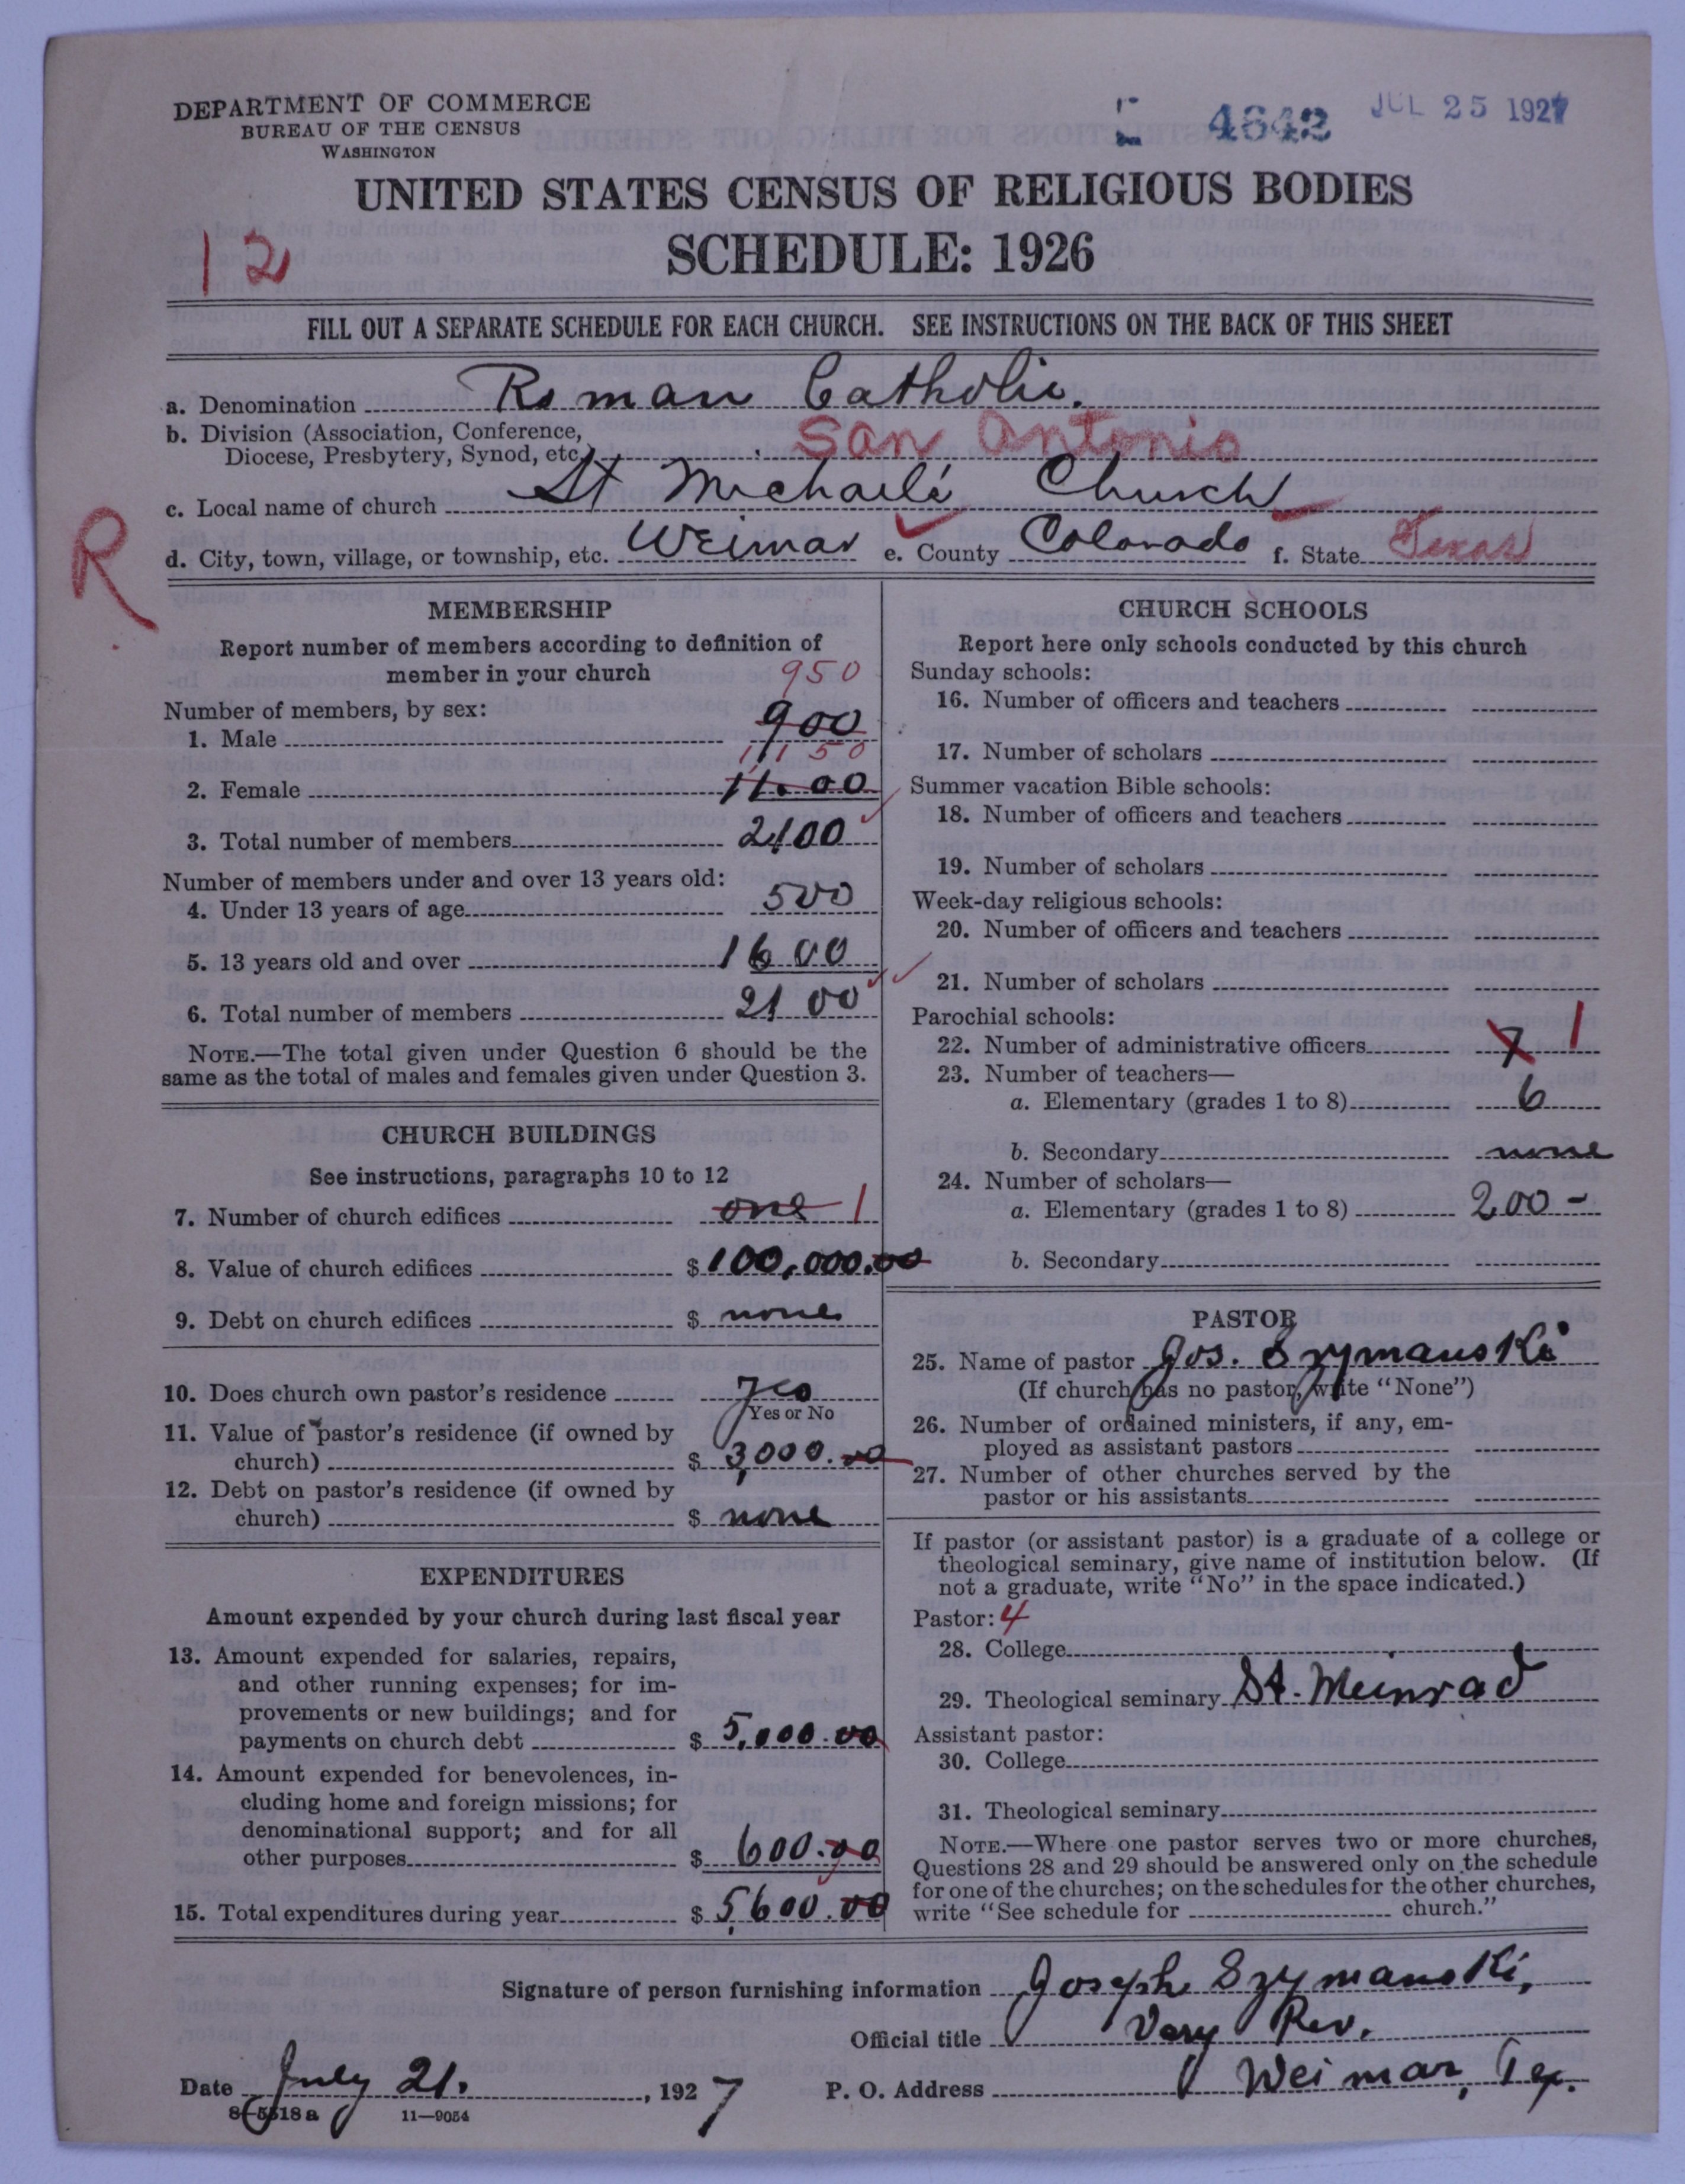 DEPARTMENT OF COMMERCE
BUREAU OF THE CENSUS
WASHINGTON
4642 JUL 25 1927
UNITED STATES CENSUS OF RELIGIOUS BODIES
SCHEDULE: 1926
12
FILL OUT A SEPARATE SCHEDULE FOR EACH CHURCH. SEE INSTRUCTIONS ON THE BACK OF THIS SHEET
a. Denomination Roman Catholic.
b. Division (Association, Conference,
Diocese, Presbytery, Synod, etc.) San Antonio
c. Local name of church St Michael's Church
R
d. City, town, village, or township, etc. Weimar e. County Colorado f. State Texas
MEMBERSHIP
Report number of members according to definition of
member in your church
Number of members, by sex:
950
1. Male 900
1150
2. Female 11.00
3. Total number of members 2100
Number of members under and over 13 years old:
4. Under 13 years of age 500
5. 13 years old and over 1600
6. Total number of members 2100
NOTE.—The total given under Question 6 should be the
same as the total of males and females given under Question 3.
CHURCH BUILDINGS
See instructions, paragraphs 10 to 12
7. Number of church edifices one 1
8. Value of church edifices $ 100,000.00
9. Debt on church edifices $ none
10. Does church own pastor's residence Yes
Yes or No
11. Value of pastor's residence (if owned by
church) $ 3,000.00
12. Debt on pastor's residence (if owned by
church) $ none
EXPENDITURES
Amount expended by your church during last fiscal year
13. Amount expended for salaries, repairs,
and other running expenses; for im-
provements or new buildings; and for
payments on church debt $ 5,000.00
14. Amount expended for benevolences, in-
cluding home and foreign missions; for
denominational support; and for all
other purposes $ 600.00
15. Total expenditures during year $ 5,600.00
CHURCH SCHOOLS
Report here only schools conducted by this church
Sunday schools:
16. Number of officers and teachers
17. Number of scholars
Summer vacation Bible schools:
18. Number of officers and teachers
19. Number of scholars
Week-day religious schools:
20. Number of officers and teachers
21. Number of scholars
Parochial schools:
22. Number of administrative officers 7 1
23. Number of teachers—
a. Elementary (grades 1 to 8) 6
b. Secondary none
24. Number of scholars—
a. Elementary (grades 1 to 8) 200-
b. Secondary
PASTOR
25. Name of pastor Jos. Szymanski
(If church has no pastor, write "None")
26. Number of ordained ministers, if any, em-
ployed as assistant pastors
27. Number of other churches served by the
pastor or his assistants
If pastor (or assistant pastor) is a graduate of a college or
theological seminary, give name of institution below. (If
not a graduate, write "No" in the space indicated.)
Pastor: 4
28. College
29. Theological seminary St. Meinrad
Assistant pastor:
30. College
31. Theological seminary
NOTE.—Where one pastor serves two or more churches,
Questions 28 and 29 should be answered only on the schedule
for one of the churches; on the schedules for the other churches,
write "See schedule for church."
Signature of person furnishing information Joseph Szymanski,
Official title Very Rev.
Date July 21. , 1927 P. O. Address Weimar, Tex.
8-5518a 11—9054